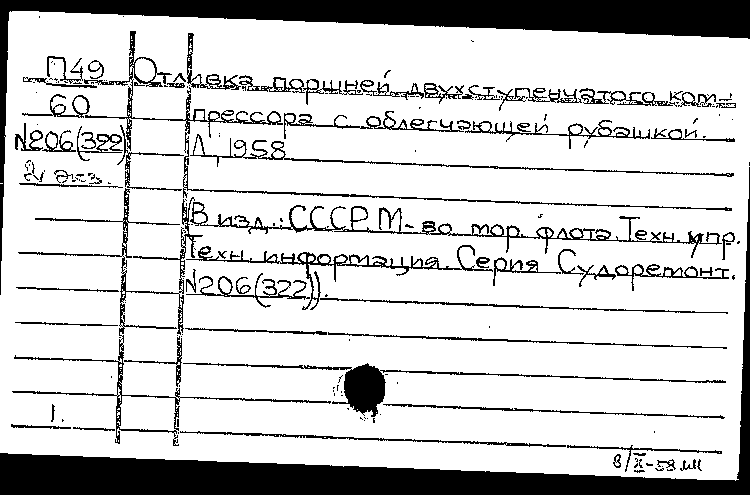 П49 Отливка поршней двухступенчатого ком-
60 прессора с облегчающей рубашкой.
N206(322) Л, 1958
2 экз.
(В изд.: СССР. М-во мор. флота. Техн. упр.
Техн. информация. Серия Судоремонт.
N206(322)).
1.
8/X-58 мм